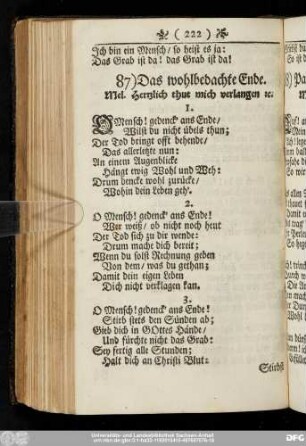 ( 222 )
Ich bin ein Mensch/ so heist es ja:
Das Grab ist da! das Grab ist da!
87.) Das wohlbedachte Ende.
Mel. Hertzlich thut mich verlangen ꝛc.
1.
O Mensch! gedenck' ans Ende/
Wilst du nicht übels thun;
Der Tod bringt offt behende/
Das allerletzte nun:
An einem Augenblicke
Hängt ewig Wohl und Weh:
Drum dencke wohl zurücke/
Wohin dein Leben geh'.
2.
O Mensch! gedenck' ans Ende!
Wer weiß/ ob nicht noch heut
Der Tod sich zu dir wende:
Drum mache dich bereit;
Wenn du solst Rechnung geben
Von dem/ was du gethan;
Damit dein eigen Leben
Dich nicht verklagen kan.
3.
O Mensch! gedenck' ans Ende!
Stirb stets den Sünden ab;
Gieb dich in GOttes Hände/
Und fürcht nicht das Grab:
Sey fertig alle Stunden;
Halt dich an Christi Blut:
Stirbst
Universitäts- und Landesbibliothek Sachsen-Anhalt
DFG